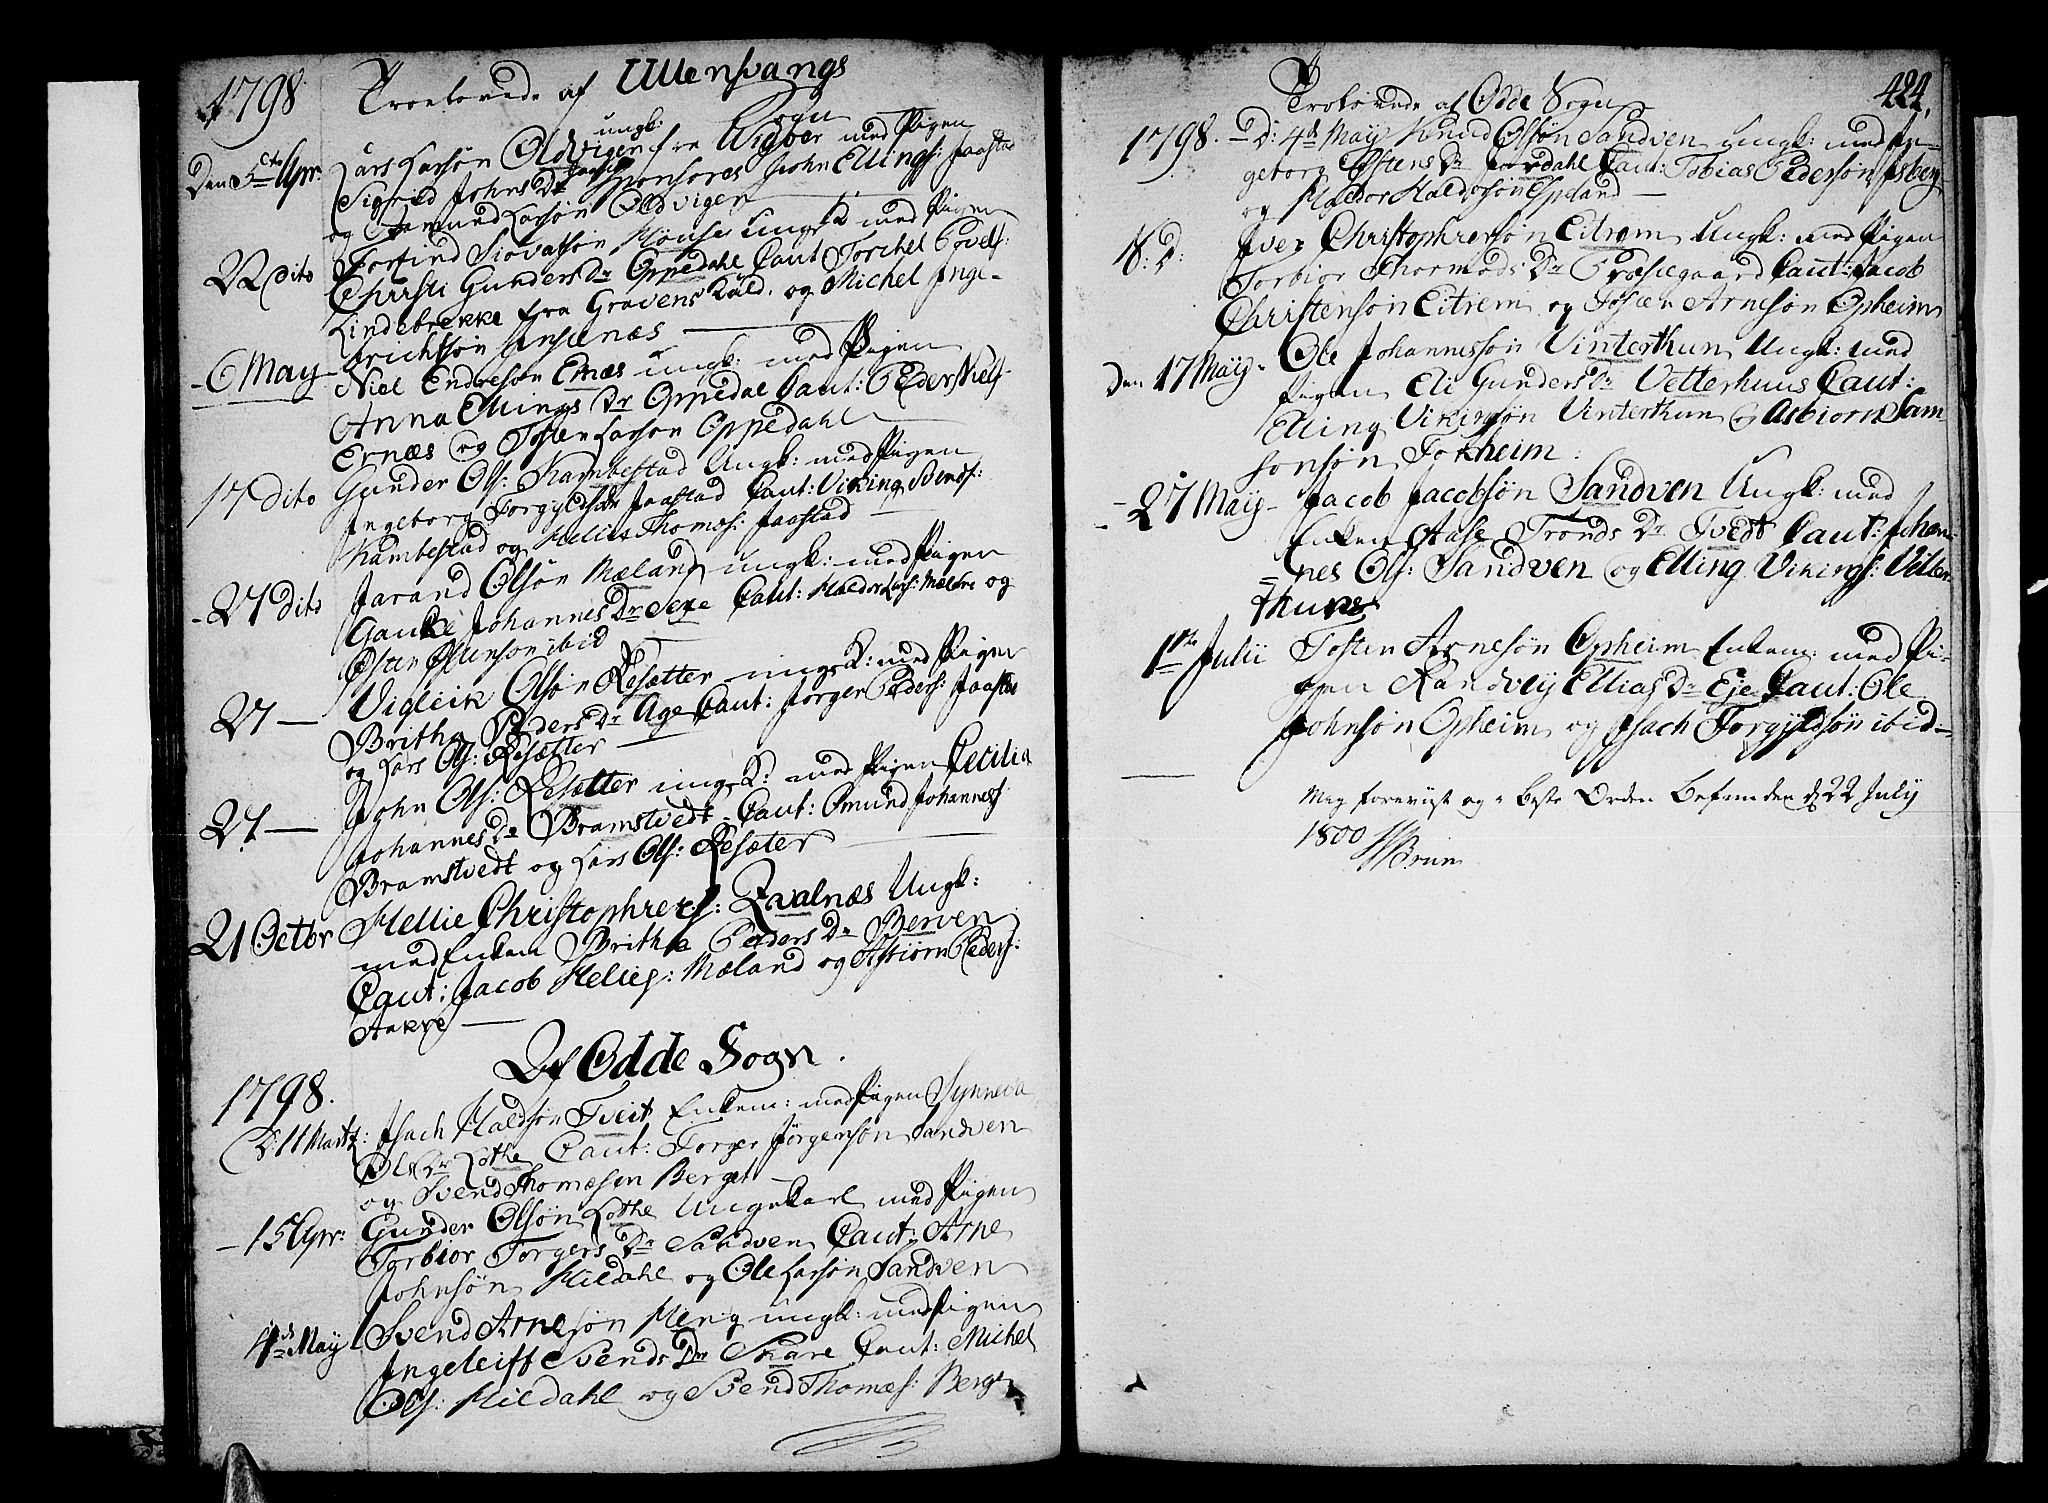 1798 Troelovede af Ullensvangs
Sogn
ungk:
Den 5te Apr. Lars Larsøn Oldvigen fra Wigøer med Pigen
Sigrid Johns Dr Jaastad Sponsores John Ellings: Jaastad
og Aamund Larsøn Oldvigen
22 dito Torfind Siovatsøn Mønse ungk: med Pigen
Christi Gunders Dr Oppedahl Caut Torchel Povels:
Lindebrekke fra Gravens Kald. og Michel Inge-
brichtsøn Jonsenæs
- 6 May - Niel Endresøn Ernæs ungk: med Pigen
Anna Ellings Dr Oppedal Caut: Peder Niels:
Ernæs og Tosten Larson Oppedahl
17 dito Gunder Ols: Kambestad Ungk: med Pigen
Ingeborg Torgyldsdr Jaastad Caut: Viking Bends:
Kambestad og Helies Thomæs: Jaastad
- 27 dito Jarand Olsøn Mæland ungk: med Pigen
Gauke Johannes Dr Sexe Caut: Haldor Lars: Mæland og
Østen Østenson ibid
27 — Vigleik Olsøn Resætter ungk: med Pigen
Britha Peders Dr Age Caut: Jørgen Peders: Jaastad
og Lars Ols: Resætter
27 — John Ols: Resætter ungk: med Pigen Cecilia
Johannes Dr Bramstvedt - Caut: Omund Johannes:
Bramstvedt og Lars Ols: Resæter
21 Octbr Hellie Christophers: Qvalnæs Ungk:
med Enken Britha Peders Dr Berven
Caut: Jacob Helies: Mæland og Asbiørn Peders:
Aakre —
Af Odde Sogn.
1798.
D: 11 Martz: Isach Haldsøn Tveit Enkem: med Pigen Synneva
Ols Dr Lothe Caut: Torger Jørgensøn Sandven
og Svend Thomæsen Berget
- 15 Apr: Gunder Olsøn Lothe Ungekarl med Pigen
Torbior Torgers Dr Sandven Caut: Arne
Johnsøn Hildahl og Ole Larsøn Sandven
4de May Svend Arnesøn Meng ungk: med Pigen
Ingeleiff Svends Dr Skare Caut: Michel
Ols: Hildahl og Svend Thomæs: Berge
424.
Trolovede af Odde Sogn
1798. - D: 4de May Knud Olsøn Sandven ungk: med In-
geborg Østens Dr Jordahl Caut: Tobias Pedersøn Isberg
og Haldor Haldorsøn Espeland —
8: D: Iver Christophersøn Eitrem Ungk: med Pigen
Torbior Thormods Dr Præstegaard Caut: Jacob
Christensøn Eitrem og Tosten Arnesøn Opheim
Den 17 May - Ole Johannesson Vinterthun Ungk: med
Pigen Eli Gunders Dr Vetterhuus Caut:
Elling Vikinsøn Vinterthun og Asbiorn Sam-
sonsøn Tokheim.
- 27 May - Jacob Jacobsøn Sandven Ungk: med
Enken Aase Tronds Dr Tvedt Caut: Johan-
nes Ols: Sandven og Elling Vikings: Vitter-
thuns
1te Julii Tosten Arnesøn Opheim Enkem: med Pi-
gen Randvey Ellias Dr Eje Caut: Ole
Johnsøn Opheim og Isach Torgyldsøn ibid -
Mig foreviist og i beste Orden befunden d 22 July
1800 Brun